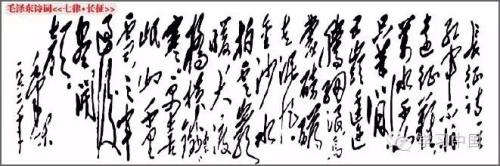 毛泽东诗词<<七律·长征>>
长征诗一
红军不怕
远征难
万水千山
只等闲
五岭逶迤
腾细浪乌
蒙磅礴
走泥丸
金沙水
拍云崖
暖大渡
桥横铁索
寒更喜
岷山千里
雪三军
过后
尽开
颜
毛泽东
学习中国